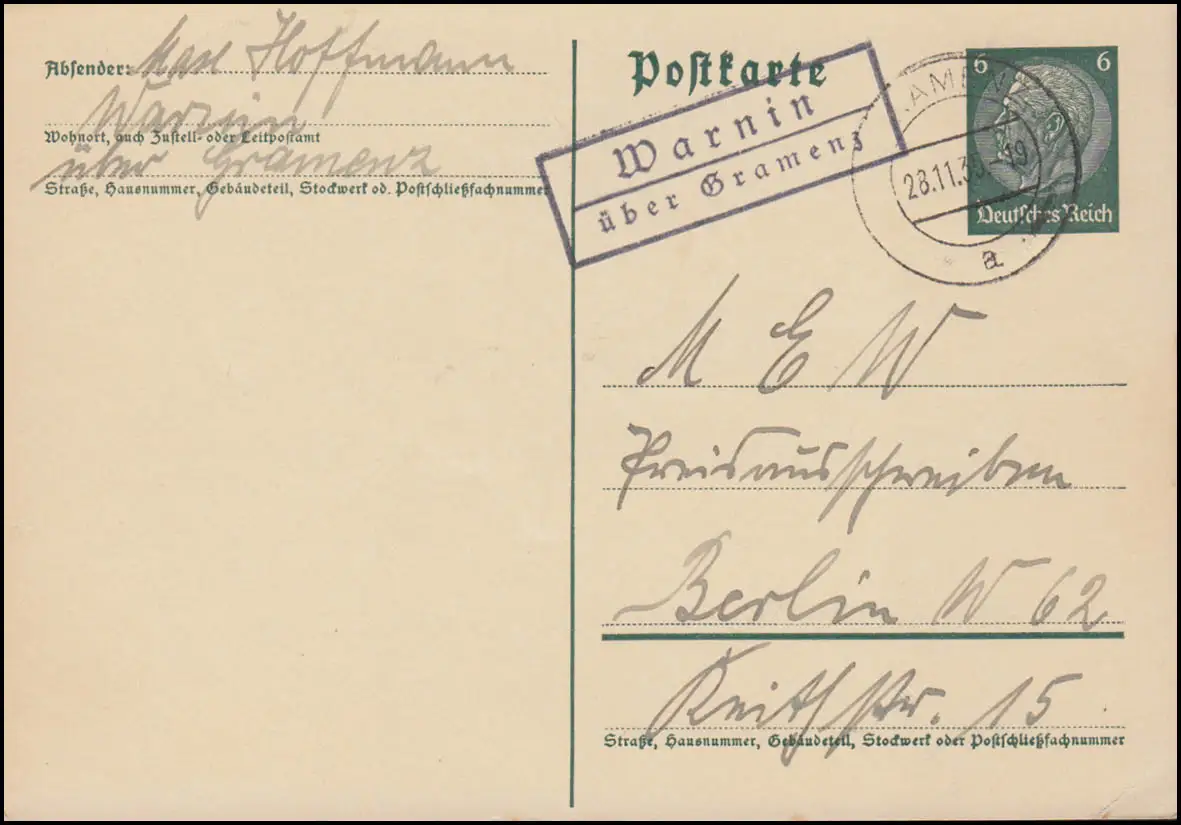 Absender: Max Hoffmann
Warnin
Wohnort, auch Zustell- oder Leitpostamt
über Gramenz
Straße, Hausnummer, Gebäudeteil, Stockwerk od. Postschließfachnummer
Postkarte
Warnin
über Gramenz
28.11.35.-19
a
6 6
Deutsches Reich
M E W
Preisausschreiben
Berlin W 62
Keithstr. 15
Straße, Hausnummer, Gebäudeteil, Stockwerk oder Postschließfachnummer